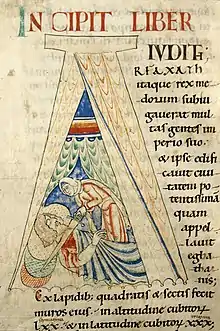 INCIPIT LIBER
IUDIT;
RFAXATH
itaque rex me
dorum subiu
gauerat mul
tas gentes im
perio suo.
& ipse edifi
cauit ciui
tatem po
tentissima
quam
appel
lauit
egba
tha
nis;
Ex lapidib; quadratis & sectis fecit
muros eius. in altitudine cubitorū
lxx. & in latitudine cubitorū xxx.